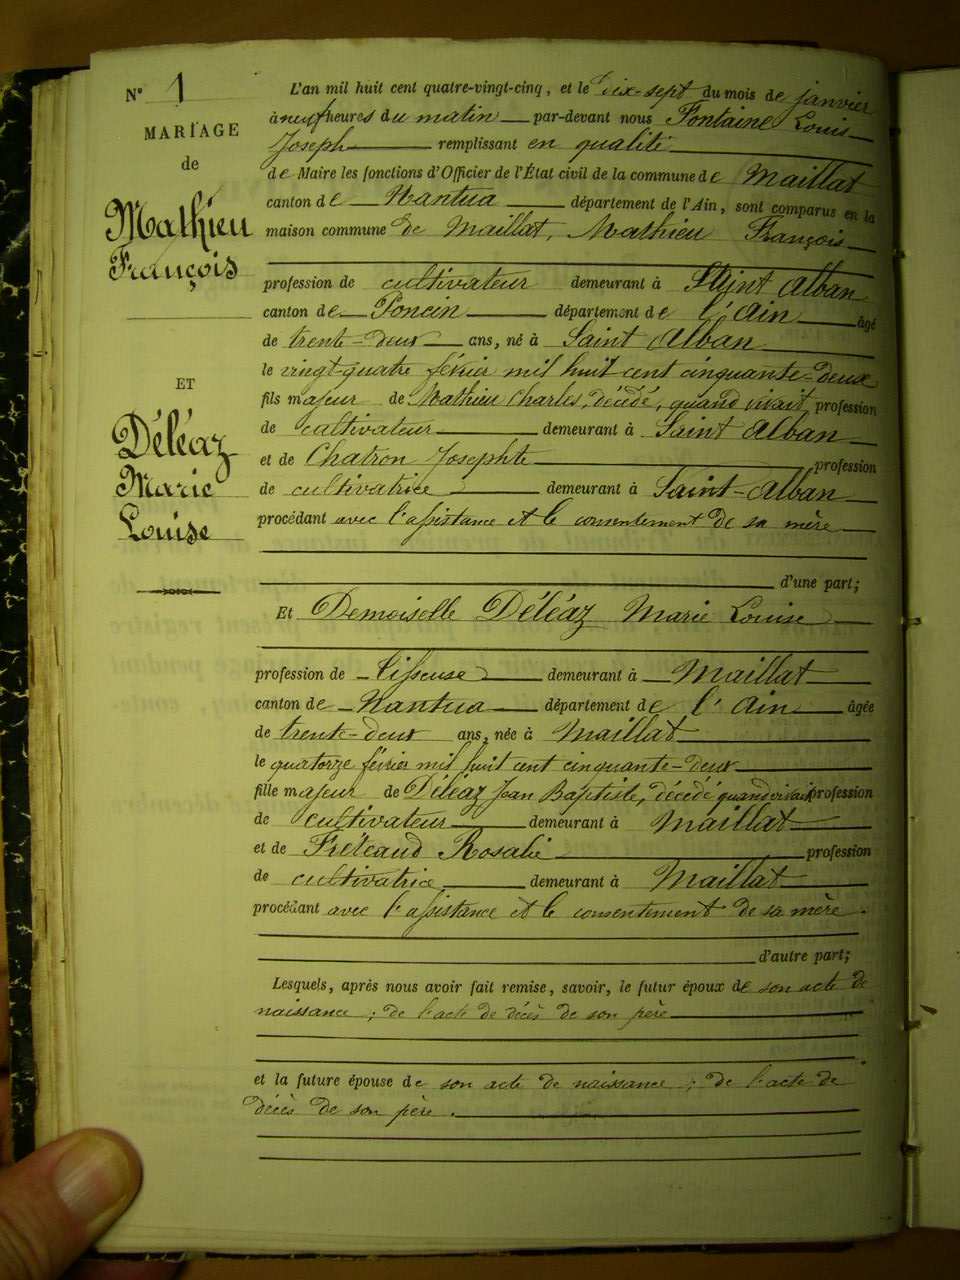 N° 1
MARIAGE
de
Mathieu
François
ET
Déléaz
Marie
Louise
L'an mil huit cent quatre-vingt-cinq, et le dix-sept du mois de janvier
à neuf heures du matin par-devant nous Fontaine Louis
Joseph remplissant en qualité
de Maire les fonctions d'Officier de l'État civil de la commune de Maillat
canton de Nantua département de l'Ain, sont comparus en la
maison commune de Maillat, Mathieu François
profession de cultivateur demeurant à Saint Alban
canton de Poncin département de l'Ain âgé
de trente-deux ans, né à Saint Alban
le vingt-quatre février mil huit cent cinquante-deux
fils majeur de Mathieu Charles, décédé, quand vivait, profession
de cultivateur demeurant à Saint Alban
et de Chatron Josephte profession
de cultivatrice demeurant à Saint-Alban
procédant avec l'assistance et le consentement de sa mère
d'une part;
Et Demoiselle Déléaz Marie Louise
profession de tisseuse demeurant à Maillat
canton de Nantua département de l'Ain âgée
de trente-deux ans, née à Maillat
le quatorze février mil huit cent cinquante-deux
fille majeur de Déléaz Jean Baptiste, décédé quand vivait profession
de cultivateur demeurant à Maillat
et de Rosalie profession
de cultivatrice demeurant à Maillat
procédant avec l'assistance et le consentement de sa mère.
d'autre part;
Lesquels, après nous avoir fait remise, savoir, le futur époux de son acte de
naissance ; de l'acte de décès de son père
et la future épouse de son acte de naissance ; de l'acte de
décès de son père.